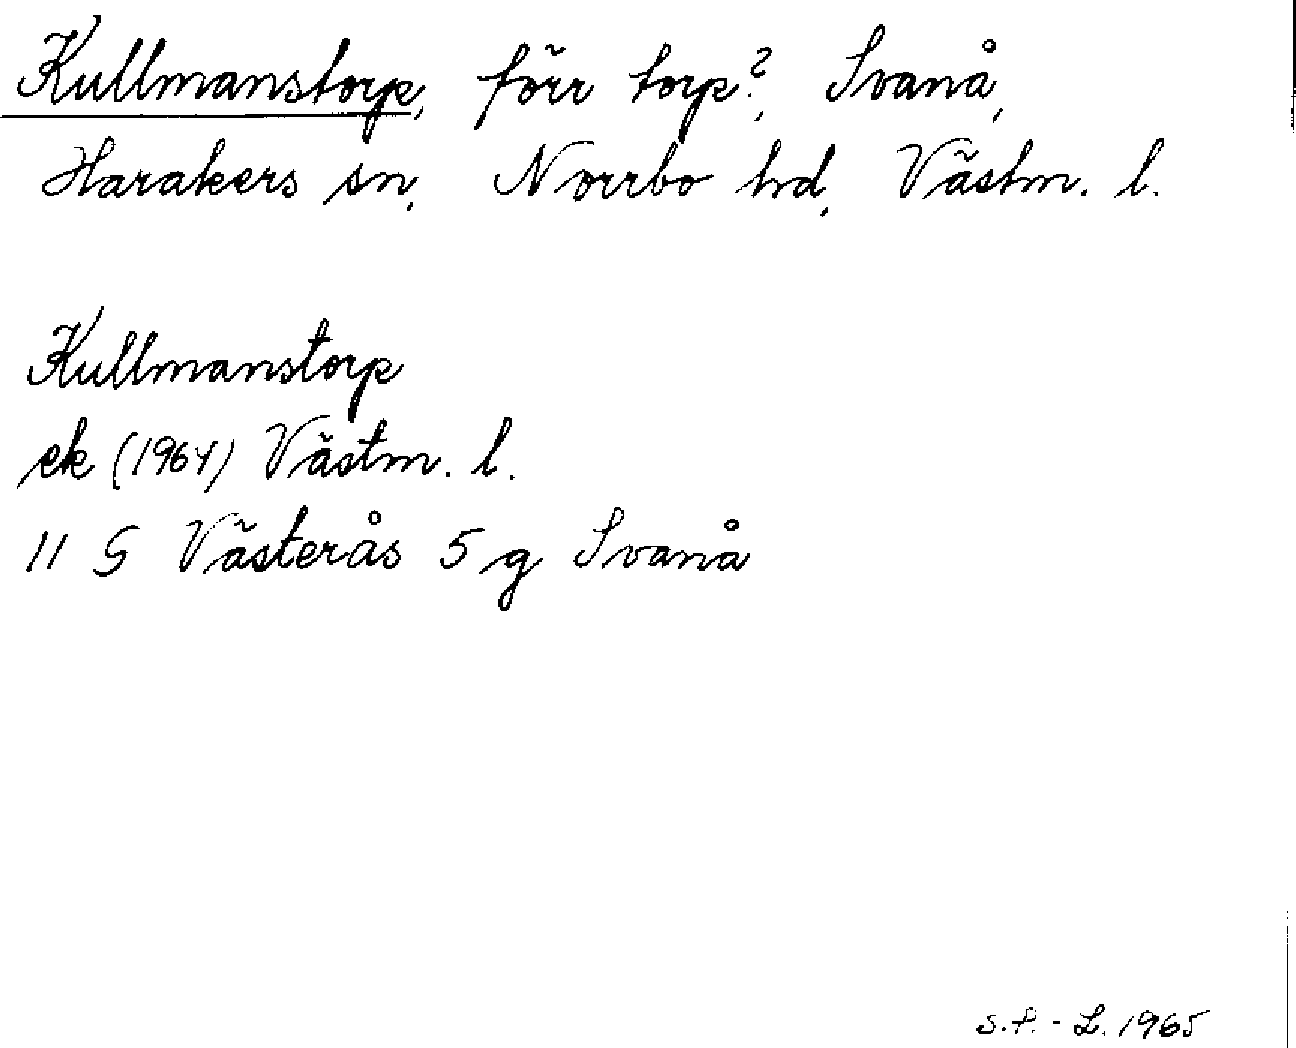 Kullmanstorp, förr torp?, Svanå,
Harakers sn, Norrbo hd, Västm. l.
Kullmanstorp
ek (1964) Västm. l.
11 G Västerås 5 g Svanå
S.f. - L. 1965